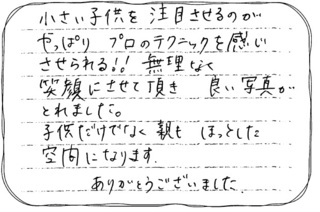 小さい子供を 注目させるのが
やっぱり プロのテクニックを感じ
させられる!! 無理なく
笑顔にさせて頂き 良い写真が
とれました。
子供だけでなく 親も ほっとした
空間になります.
ありがとうございました.